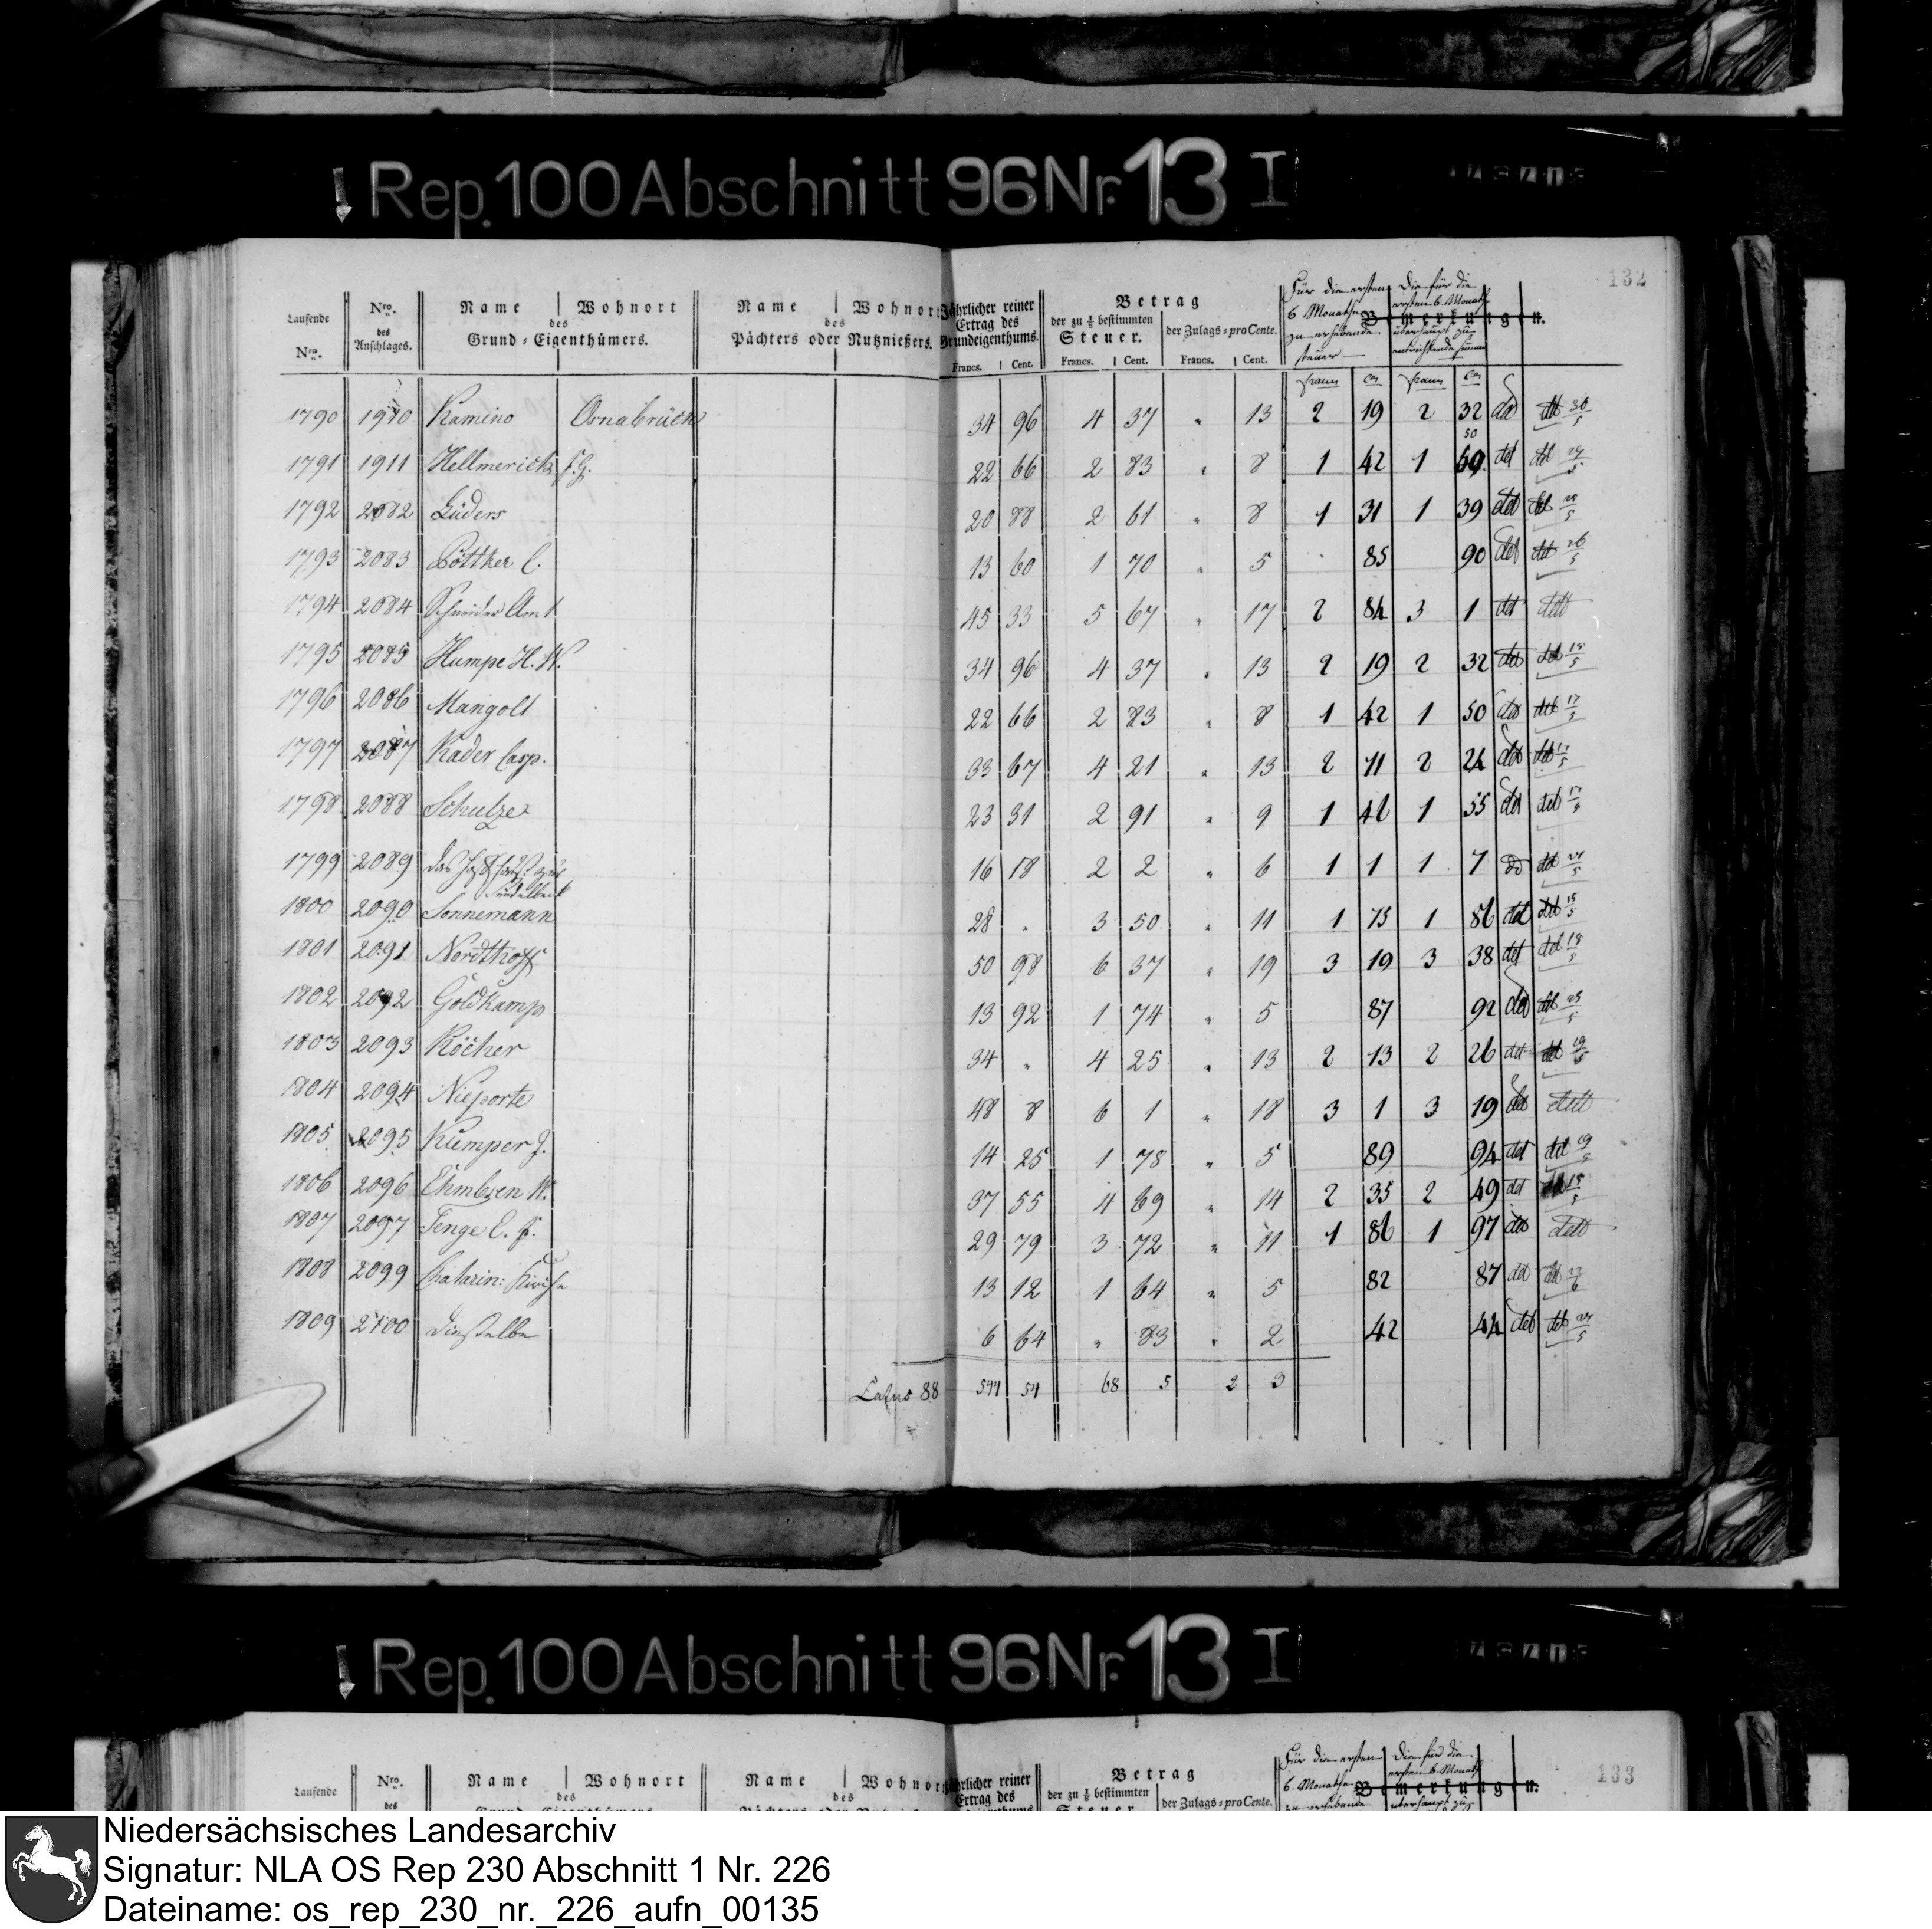 Rep. 100 Abschnitt 96 Nr. 13 I
132
Für die ersten 6 Monathe zu erhebende Steuer
Die für die ersten 6 Monath überhaupt zu entrichtende Summe
Laufende Nro. | Nro. des Anschlages. | Name | Wohnort des Grund-Eigenthümers. | Name | Wohnort des Pächters oder Nutznießers. | Jährlicher reiner Ertrag des Grundeigenthums. | Betrag der zu ⅛ bestimmten Steuer. | der Zulags-pro Cente. | Bemerkungen.
Francs. | Cent. | Francs. | Cent. | Francs. | Cent. | Franc | Cen | Franc | Cen
1790 | 1910 | Kamino | Osnabrück | 34 | 96 | 4 | 37 | " | 13 | 2 | 19 | 2 | 32 | dd | dd 30/5
1791 | 1911 | Hellmerich F. G. | 22 | 66 | 2 | 83 | " | 8 | 1 | 42 | 1 | 50 | dd | dd 19/5
1792 | 2082 | Lüders | 20 | 88 | 2 | 61 | " | 8 | 1 | 31 | 1 | 39 | dd | dd
1793 | 2083 | Pöttker C. | 13 | 60 | 1 | 70 | " | 5 | 85 | 90 | dd | dd 26/5
1794 | 2084 | Schneider Amt | 45 | 33 | 5 | 67 | " | 17 | 2 | 84 | 3 | 1 | dd
1795 | 2085 | Humpe H. W. | 34 | 96 | 4 | 37 | " | 13 | 2 | 19 | 2 | 32 | dd | dd
1796 | 2086 | Mangolt | 22 | 66 | 2 | 83 | " | 8 | 1 | 42 | 1 | 50 | dd | dd 17/5
1797 | 2087 | Rader Casp. | 33 | 67 | 4 | 21 | " | 13 | 2 | 11 | 2 | 24 | dd | dd
1798 | 2088 | Schulze | 23 | 31 | 2 | 91 | " | 9 | 1 | 46 | 1 | 55 | dd | dd
1799 | 2089 | das | 16 | 18 | 2 | 2 | " | 6 | 1 | 1 | 1 | 7 | dd | dd
1800 | 2090 | Sonnemann | 28 | " | 3 | 50 | " | 11 | 1 | 75 | 1 | 86 | dd | dd 15/5
1801 | 2091 | Nordthoff | 50 | 98 | 6 | 37 | " | 19 | 3 | 19 | 3 | 38 | dd | dd 18/5
1802 | 2092 | Goldkamp | 13 | 92 | 1 | 74 | " | 5 | 87 | 92 | dd | dd
1803 | 2093 | Köcher | 34 | " | 4 | 25 | " | 13 | 2 | 13 | 2 | 26 | dd | dd
1804 | 2094 | Nieporte | 48 | 8 | 6 | 1 | " | 18 | 3 | 1 | 3 | 19 | dd
1805 | 2095 | Kümper J. | 14 | 25 | 1 | 78 | " | 5 | 89 | 94 | dd | dd
1806 | 2096 | Ehmbsen W. | 37 | 55 | 4 | 69 | " | 14 | 2 | 35 | 2 | 49 | dd | 15/5
1807 | 2097 | Tenge E. F. | 29 | 79 | 3 | 72 | " | 11 | 1 | 86 | 1 | 97 | dd
1808 | 2099 | Catharin: Kirche | 13 | 12 | 1 | 64 | " | 5 | 82 | 87 | dd | dd
1809 | 2100 | dieselbe | 6 | 64 | " | 83 | " | 2 | 42 | 44 | dd | dd
Latus 88 | 544 | 54 | 68 | 5 | 2 | 3
Rep. 100 Abschnitt 96 Nr. 13 I
133
Für die ersten 6 Monathe zu erhebende
Die für die ersten 6 Monath überhaupt zu
Laufende | Nro. des | Name | Wohnort des | Name | Wohnort des | Jährlicher reiner Ertrag des | Betrag der zu ⅛ bestimmten | der Zulags-pro Cente. | Bemerkungen.
Niedersächsisches Landesarchiv
Signatur: NLA OS Rep 230 Abschnitt 1 Nr. 226
Dateiname: os_rep_230_nr._226_aufn_00135